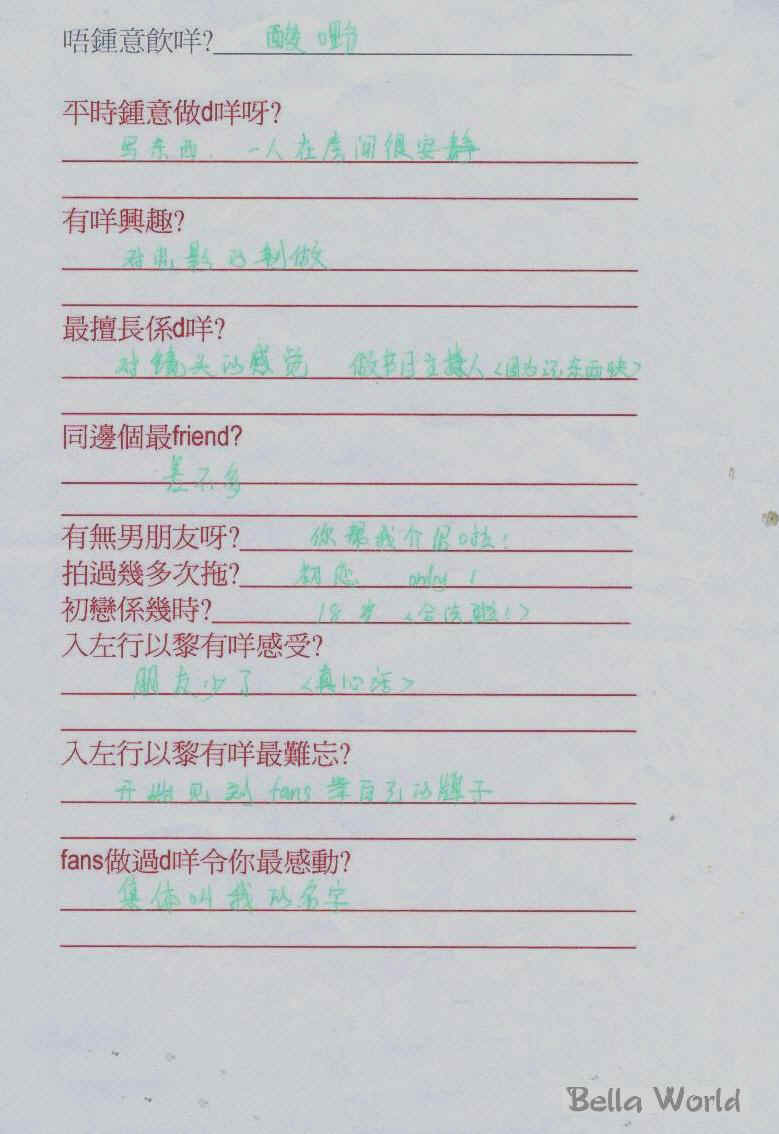 唔鍾意飲咩? 酸嘢
平時鍾意做d咩呀?
写东西. 一人在房间很安静
有咩興趣?
对电影的制做
最擅長係d咩?
对镜头的感觉 做节目主持人<因为 东西快>
同邊個最friend?
差不多
有無男朋友呀? 你帮我介绍啦!
拍過幾多次拖? 初恋 only!
初戀係幾時? 18岁 <合法 !>
入左行以黎有咩感受?
朋友少了 <真心话>
入左行以黎有咩最難忘?
开始见到fans 自己的牌子
fans做過d咩令你最感動?
集体叫我的名字
Bella World